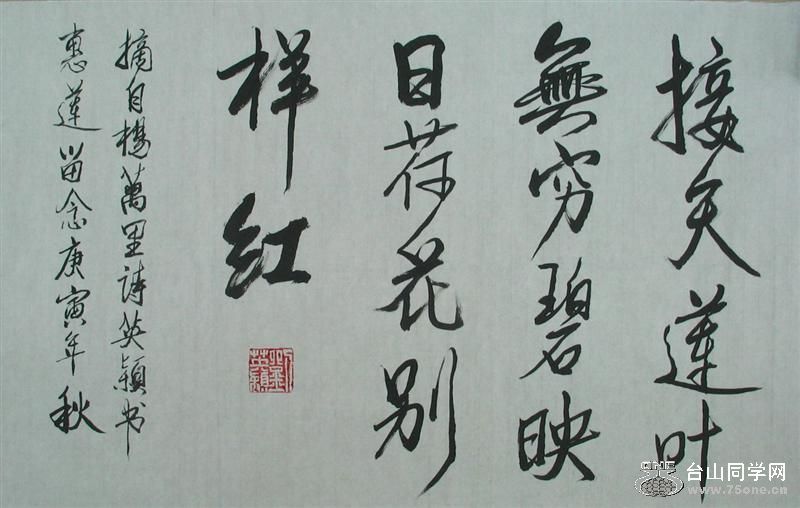 接天莲叶
無穷碧映
日荷花别
样红
摘自楊萬里詩英颖书
惠莲留念庚寅年秋
台山同学网
www.75one.cn